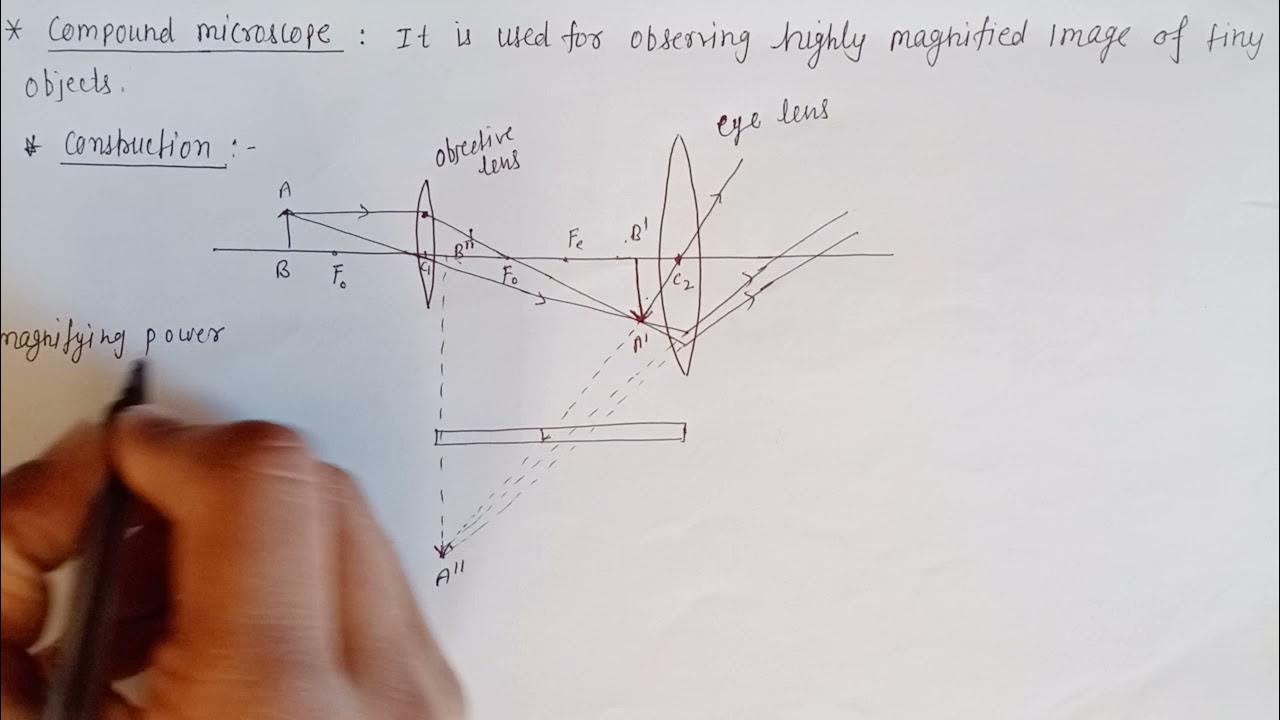 * Compound microscope : It is used for observing highly magnified Image of tiny
objects.
* Construction :-
eye lens
objective
lens
A
B
F₀
C₁
B''
F₀
Fe
B'
C₂
A'
magnifying power
A''